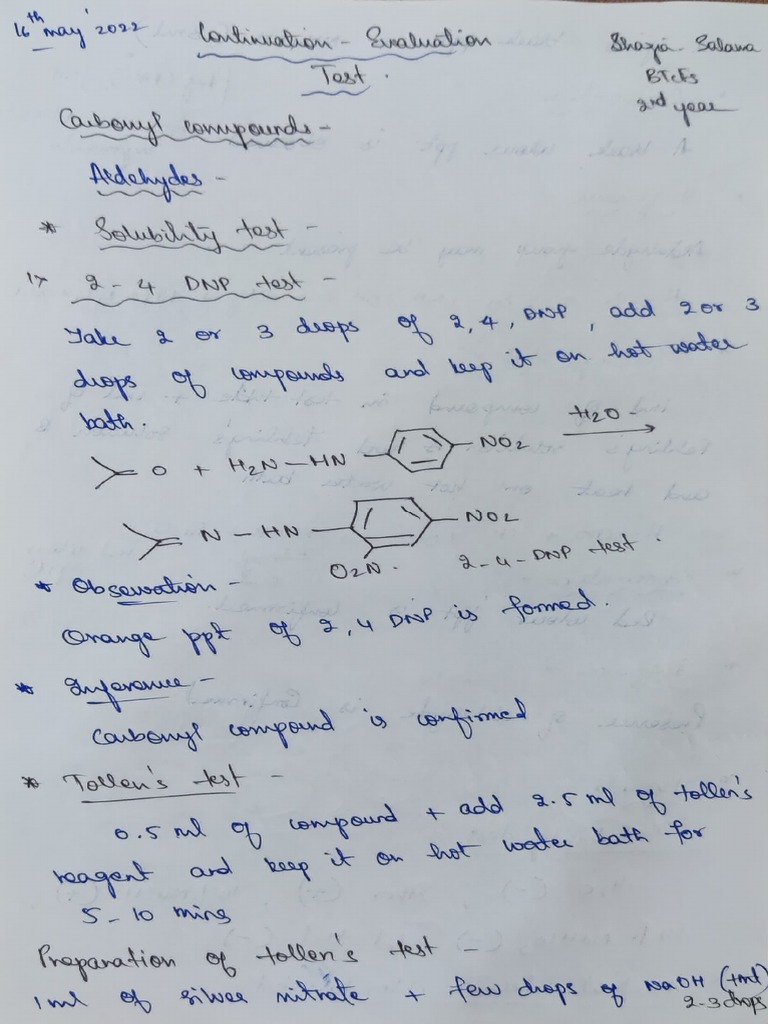 16th may' 2022
Continuation - Evaluation
Test.
Shazia Salama
BTCFS
2nd year
Carbonyl compounds -
Aldehydes -
* Solubility test -
1> 2-4 DNP test -
Take 2 or 3 drops of 2,4, DNP, add 2 or 3
drops of compounds and keep it on hot water
bath.
O + H2N-HN NO2 H2O
N-HN NO2
O2N. 2-4-DNP test.
* Observation -
Orange ppt of 2,4 DNP is formed.
* Inference -
Carbonyl compound is confirmed
* Tollen's test -
0.5 ml of compound + add 2.5 ml of tollen's
reagent and keep it on hot water bath for
5-10 mins
Preparation of tollen's test -
1ml of silver nitrate + few drops of NaOH (1ml)
2-3 drops